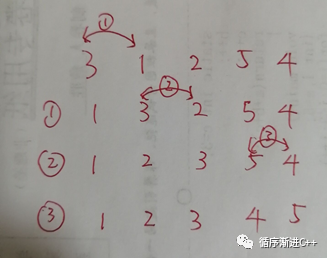 ①
3 1 2 5 4
②
① 1 3 2 5 4
③
② 1 2 3 5 4
③ 1 2 3 4 5
循序渐进C++